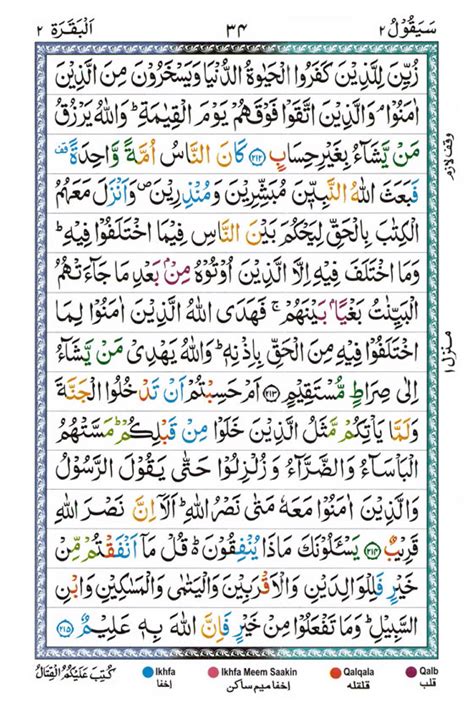 سَيَقُوۡلُ ٢ ٣٤ اَلۡبَقَرَة ٢
زُيِّنَ لِلَّذِيۡنَ كَفَرُوا الۡحَيٰوةُ الدُّنۡيَا وَيَسۡخَرُوۡنَ مِنَ الَّذِيۡنَ
اٰمَنُوۡا ۘ وَالَّذِيۡنَ اتَّقَوۡا فَوۡقَهُمۡ يَوۡمَ الۡقِيٰمَةِ ؕ وَاللّٰهُ يَرۡزُقُ
مَنۡ يَّشَآءُ بِغَيۡرِ حِسَابٍ ﴿۲۱۲﴾ كَانَ النَّاسُ اُمَّةً وَّاحِدَةً قف
فَبَعَثَ اللّٰهُ النَّبِيّٖنَ مُبَشِّرِيۡنَ وَمُنۡذِرِيۡنَ ص وَاَنۡزَلَ مَعَهُمُ
الۡكِتٰبَ بِالۡحَقِّ لِيَحۡكُمَ بَيۡنَ النَّاسِ فِيۡمَا اخۡتَلَفُوۡا فِيۡهِ ؕ
وَمَا اخۡتَلَفَ فِيۡهِ اِلَّا الَّذِيۡنَ اُوۡتُوۡهُ مِنۡۢ بَعۡدِ مَا جَآءَتۡهُمُ
الۡبَيِّنٰتُ بَغۡيًاۢ بَيۡنَهُمۡ ۚ فَهَدَى اللّٰهُ الَّذِيۡنَ اٰمَنُوۡا لِمَا
اخۡتَلَفُوۡا فِيۡهِ مِنَ الۡحَقِّ بِاِذۡنِهٖ ؕ وَاللّٰهُ يَهۡدِىۡ مَنۡ يَّشَآءُ
اِلٰى صِرَاطٍ مُّسۡتَقِيۡمٍ ﴿۲۱۳﴾ اَمۡ حَسِبۡتُمۡ اَنۡ تَدۡخُلُوا الۡجَنَّةَ
وَلَمَّا يَاۡتِكُمۡ مَّثَلُ الَّذِيۡنَ خَلَوۡا مِنۡ قَبۡلِكُمۡ ؕ مَسَّتۡهُمُ
الۡبَاۡسَآءُ وَالضَّرَّآءُ وَزُلۡزِلُوۡا حَتّٰى يَقُوۡلَ الرَّسُوۡلُ
وَالَّذِيۡنَ اٰمَنُوۡا مَعَهٗ مَتٰى نَصۡرُ اللّٰهِ ؕ اَلَاۤ اِنَّ نَصۡرَ اللّٰهِ
قَرِيۡبٌ ﴿۲۱۴﴾ يَسۡـَٔلُوۡنَكَ مَاذَا يُنۡفِقُوۡنَ ؕ قُلۡ مَاۤ اَنۡفَقۡتُمۡ مِّنۡ
خَيۡرٍ فَلِلۡوَالِدَيۡنِ وَالۡاَقۡرَبِيۡنَ وَالۡيَتٰمٰى وَالۡمَسٰكِيۡنِ وَابۡنِ
السَّبِيۡلِ ؕ وَمَا تَفۡعَلُوۡا مِنۡ خَيۡرٍ فَاِنَّ اللّٰهَ بِهٖ عَلِيۡمٌ ﴿۲۱۵﴾
وقف لازم
منزل ١
Ikhfa اخفا
Ikhfa Meem Saakin اخفا میم ساکن
Qalqala قلقله
Qalb قلب
كُتِبَ عَلَيۡكُمُ الۡقِتَالُ